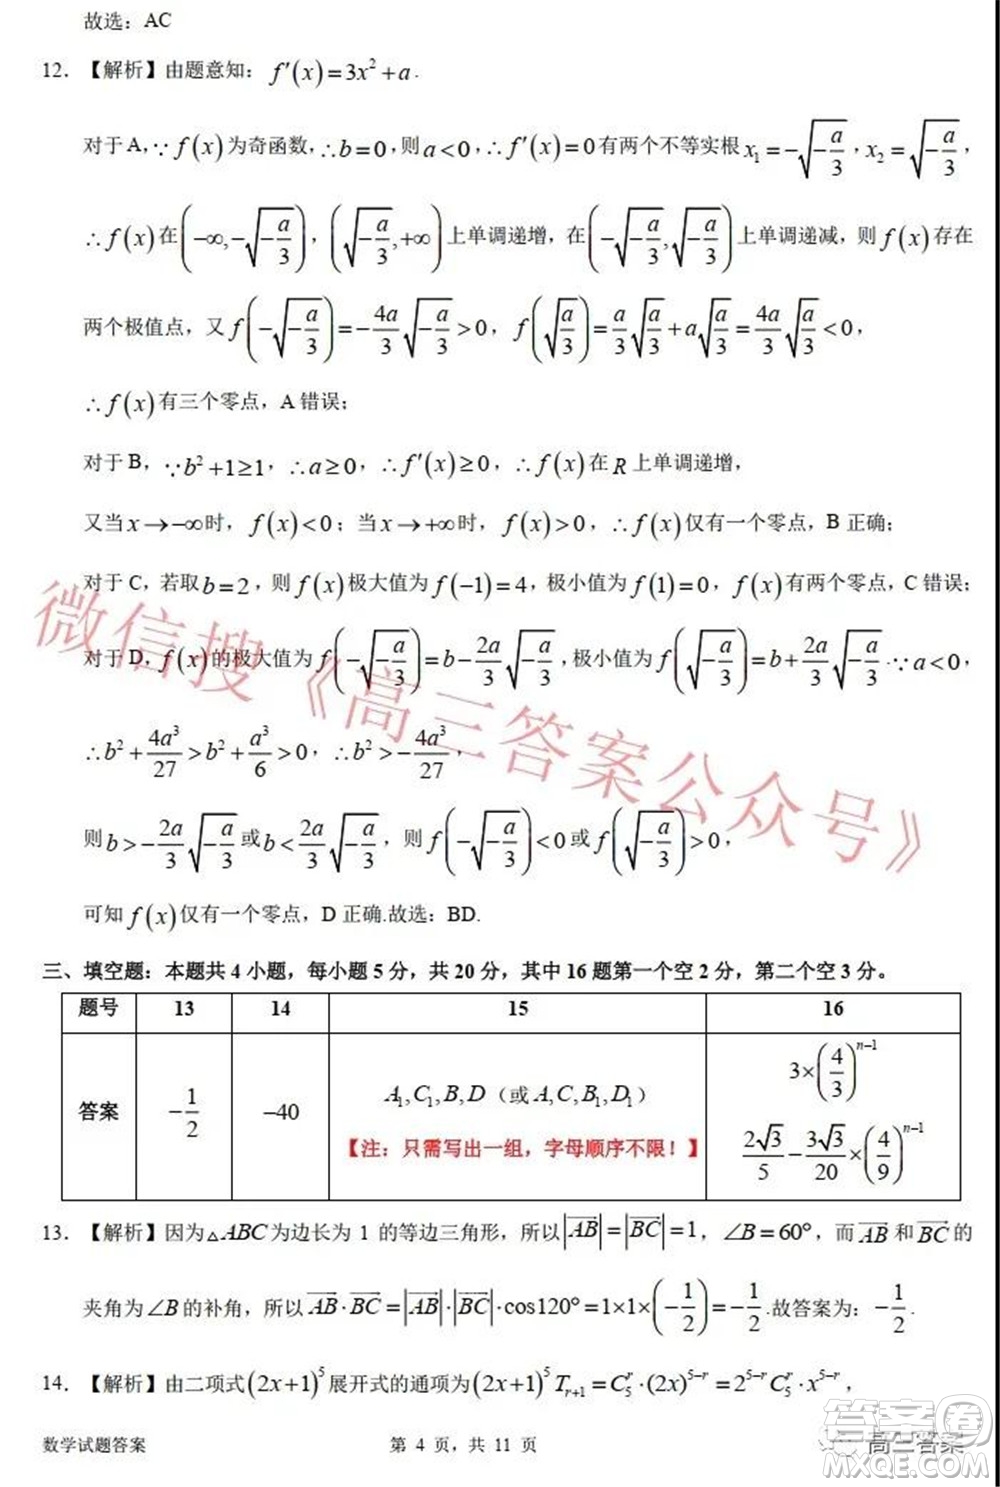 故选：AC
12. 【解析】由题意知：f′(x)=3x²+a.
对于A,∵f(x)为奇函数,∴b=0,则a<0,∴f′(x)=0有两个不等实根x₁=-√(-a/3),x₂=√(-a/3),
∴f(x)在(-∞,-√(-a/3)),(√(-a/3),+∞)上单调递增，在(-√(-a/3),√(-a/3))上单调递减，则f(x)存在
两个极值点，又f(-√(-a/3))=-4a/3√(-a/3)>0，f(√(a/3))=a/3√(a/3)+a√(a/3)=4a/3√(a/3)<0，
∴f(x)有三个零点，A错误；
对于B，∵b²+1≥1，∴a≥0，∴f′(x)≥0，∴f(x)在R上单调递增，
又当x→-∞时，f(x)<0；当x→+∞时，f(x)>0，∴f(x)仅有一个零点，B正确；
对于C，若取b=2，则f(x)极大值为f(-1)=4，极小值为f(1)=0，f(x)有两个零点，C错误；
对于D，f(x)的极大值为f(-√(-a/3))=b-2a/3√(-a/3),极小值为f(√(-a/3))=b+2a/3√(-a/3).∵a<0，
∴b²+4a³/27>b²+a³/6>0，∴b²>-4a³/27，
则b>-2a/3√(-a/3)或b<2a/3√(-a/3)，则f(-√(-a/3))<0或f(√(-a/3))>0，
可知f(x)仅有一个零点，D正确.故选：BD.
三、填空题：本题共4小题，每小题5分，共20分，其中16题第一个空2分，第二个空3分。
题号 13 14 15 16
答案 -1/2 -40 A₁,C₁,B,D（或A,C,B₁,D₁） 3×(4/3)ⁿ⁻¹
【注：只需写出一组，字母顺序不限！】 2√3/5-3√3/20×(4/9)ⁿ⁻¹
13. 【解析】因为△ABC为边长为1的等边三角形，所以|AB|=|BC|=1，∠B=60°，而AB和BC的
夹角为∠B的补角，所以AB·BC=|AB|·|BC|·cos120°=1×1×(-1/2)=-1/2.故答案为：-1/2.
14. 【解析】由二项式(2x+1)⁵展开式的通项为(2x+1)⁵Tᵣ₊₁=C₅ʳ·(2x)⁵⁻ʳ=2⁵⁻ʳC₅ʳ·x⁵⁻ʳ，
数学试题答案 第 4 页，共 11 页 高三答案
微信搜《高三答案公众号》
答案卷
MXQE.COM